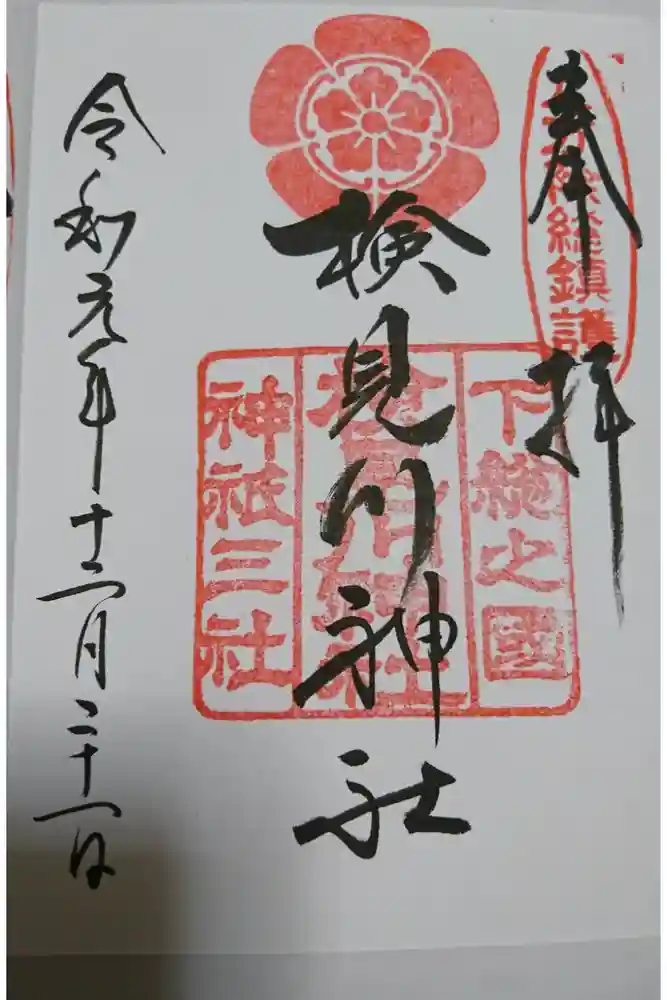 奉拝
除総鎮護
下総之國
検見川神社
神祇三社
検見川神社
令和元年十二月二十一日